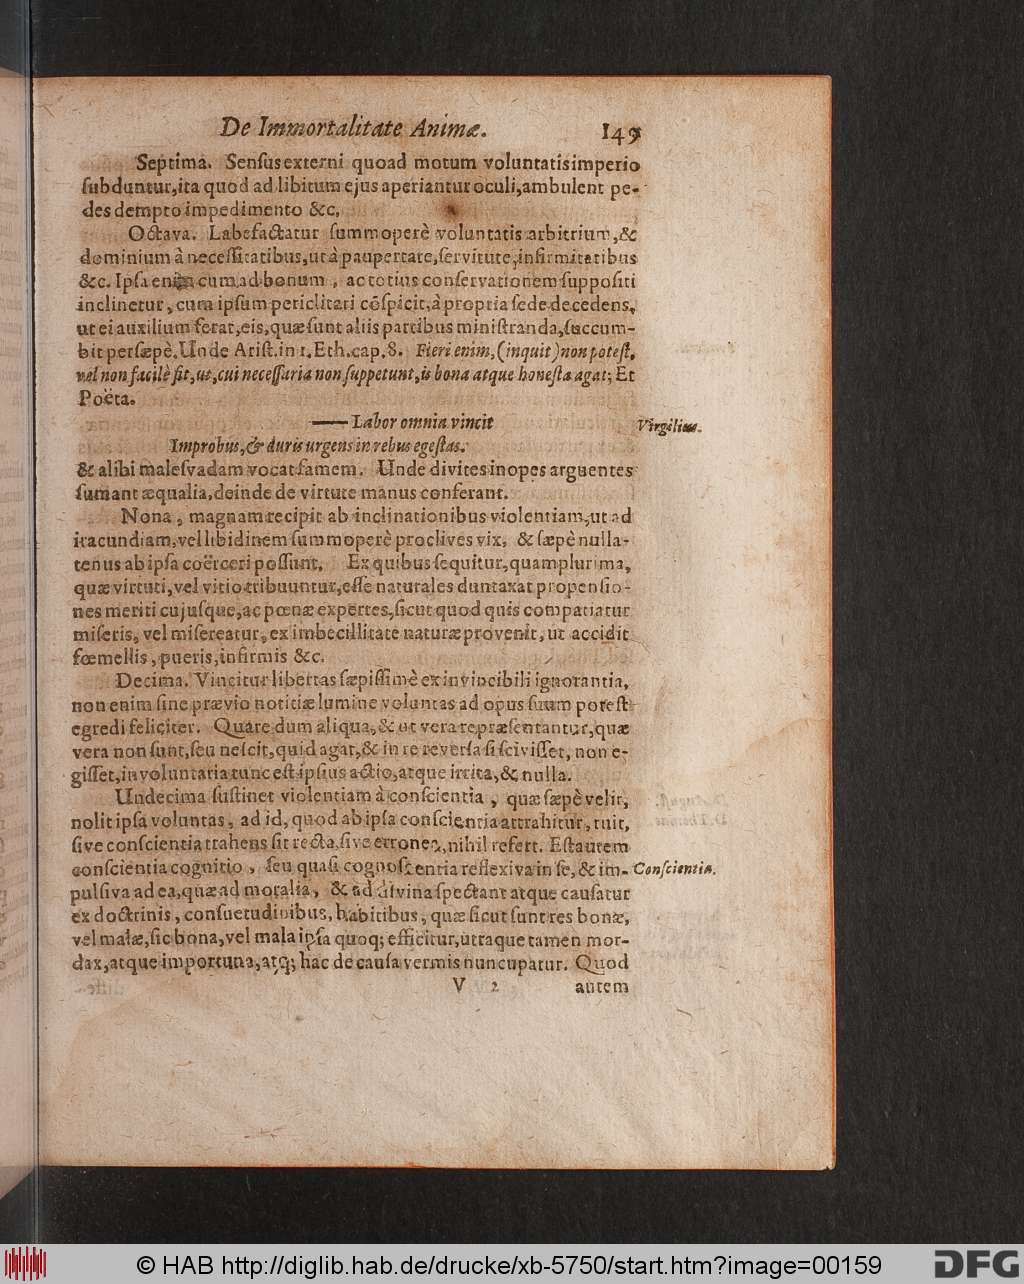 De Immortalitate Animæ. 149
Septima. Senſus externi quoad motum voluntatis imperio
ſubduntur, ita quod ad libitum ejus aperiantur oculi, ambulent pe-
des dempto impedimento &c.
Octava. Labefactatur ſummoperè voluntatis arbitrium, &
dominium à neceſſitatibus, ut à paupertate, ſervitute, infirmitatibus
&c. Ipſa enim cum ad bonum, ac totius conſervationem ſuppoſiti
inclinetur, cum ipſum periclitari cõſpicit, à propria ſede decedens,
ut ei auxilium ferat, eis, quæ ſunt aliis partibus miniſtranda, ſuccum-
bit perſæpè. Unde Ariſt. in 1. Eth. cap. 8. Fieri enim, (inquit) non poteſt,
vel non facilè fit, ut, cui neceſſaria non ſuppetunt, is bona atque honeſta agat; Et
Poëta.
—— Labor omnia vincit
Virgilius.
Improbus, & duris urgens in rebus egeſtas.
& alibi maleſvadam vocat famem. Unde divites inopes arguentes
ſumant æqualia, deinde de virtute manus conferant.
Nona, magnam recipit ab inclinationibus violentiam, ut ad
iracundiam, vel libidinem ſummoperè proclives vix, & ſæpè nulla-
tenus ab ipſa coërceri poſſunt. Ex quibus ſequitur, quamplurima,
quæ virtuti, vel vitio tribuuntur, eſſe naturales duntaxat propenſio-
nes meriti cujuſque, ac pœnæ expertes, ſicut quod quis compatiatur
miſeris, vel miſereatur, ex imbecillitate naturæ provenit, ut accidit
fœmellis, pueris, infirmis &c.
Decima. Vincitur libertas ſæpiſſimè ex invincibili ignorantia,
non enim ſine prævio notitiæ lumine voluntas ad opus ſuum poteſt
egredi feliciter. Quare dum aliqua, & ut vera repræſentantur, quæ
vera non ſunt, ſeu neſcit, quid agat, & in re reverſa ſi ſciviſſet, non e-
giſſet, involuntaria tunc eſt ipſius actio, atque irrita, & nulla.
Undecima ſuſtinet violentiam à conſcientia, quæ ſæpè velit,
nolit ipſa voluntas, ad id, quod ab ipſa conſcientia attrahitur, ruit,
ſive conſcientia trahens ſit recta, ſive erronea, nihil refert. Eſt autem
conſcientia cognitio, ſeu quaſi cognoſcentia reflexiva in ſe, & im-
Conſcientia.
pulſiva ad ea, quæ ad moralia, & ad divina ſpectant atque cauſatur
ex doctrinis, conſuetudinibus, habitibus, quæ ſicut ſunt res bonæ,
vel malæ, ſic bona, vel mala ipſa quoq; efficitur, utraque tamen mor-
dax, atque importuna, atq; hac de cauſa vermis nuncupatur. Quod
V 2 autem
© HAB http://diglib.hab.de/drucke/xb-5750/start.htm?image=00159
DFG